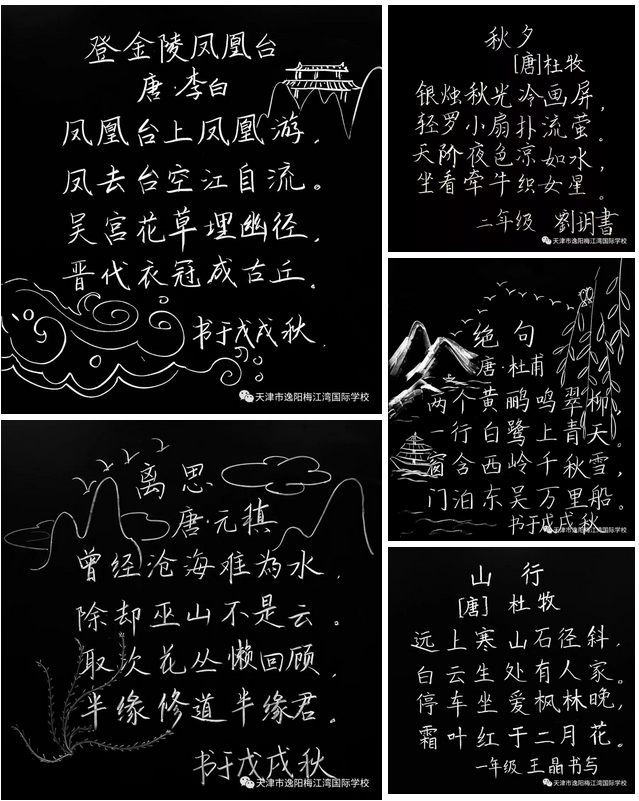 登·金陵凤凰台
唐·李白
凤凰台上凤凰游，
凤去台空江自流。
吴宫花草埋幽径，
晋代衣冠成古丘。
书于戊戌秋.
天津市逸阳梅江湾国际学校
秋夕
[唐]杜牧
银烛秋光冷画屏，
轻罗小扇扑流萤。
天阶夜色凉如水，
坐看牵牛织女星。
二年级 劉玥書
天津市逸阳梅江湾国际学校
绝句
唐·杜甫
两个黄鹂鸣翠柳，
一行白鹭上青天。
窗含西岭千秋雪，
门泊东吴万里船。
书于戊戌秋
天津市逸阳梅江湾国际学校
离思
唐·元稹
曾经沧海难為水，
除却巫山不是云。
取次花丛懒回顾，
半缘修道半缘君。
书于戊戌秋
天津市逸阳梅江湾国际学校
山行
[唐] 杜牧
远上寒山石径斜，
白云生处有人家。
停车坐爱枫林晚，
霜叶红于二月花。
一年级 王晶书写
天津市逸阳梅江湾国际学校